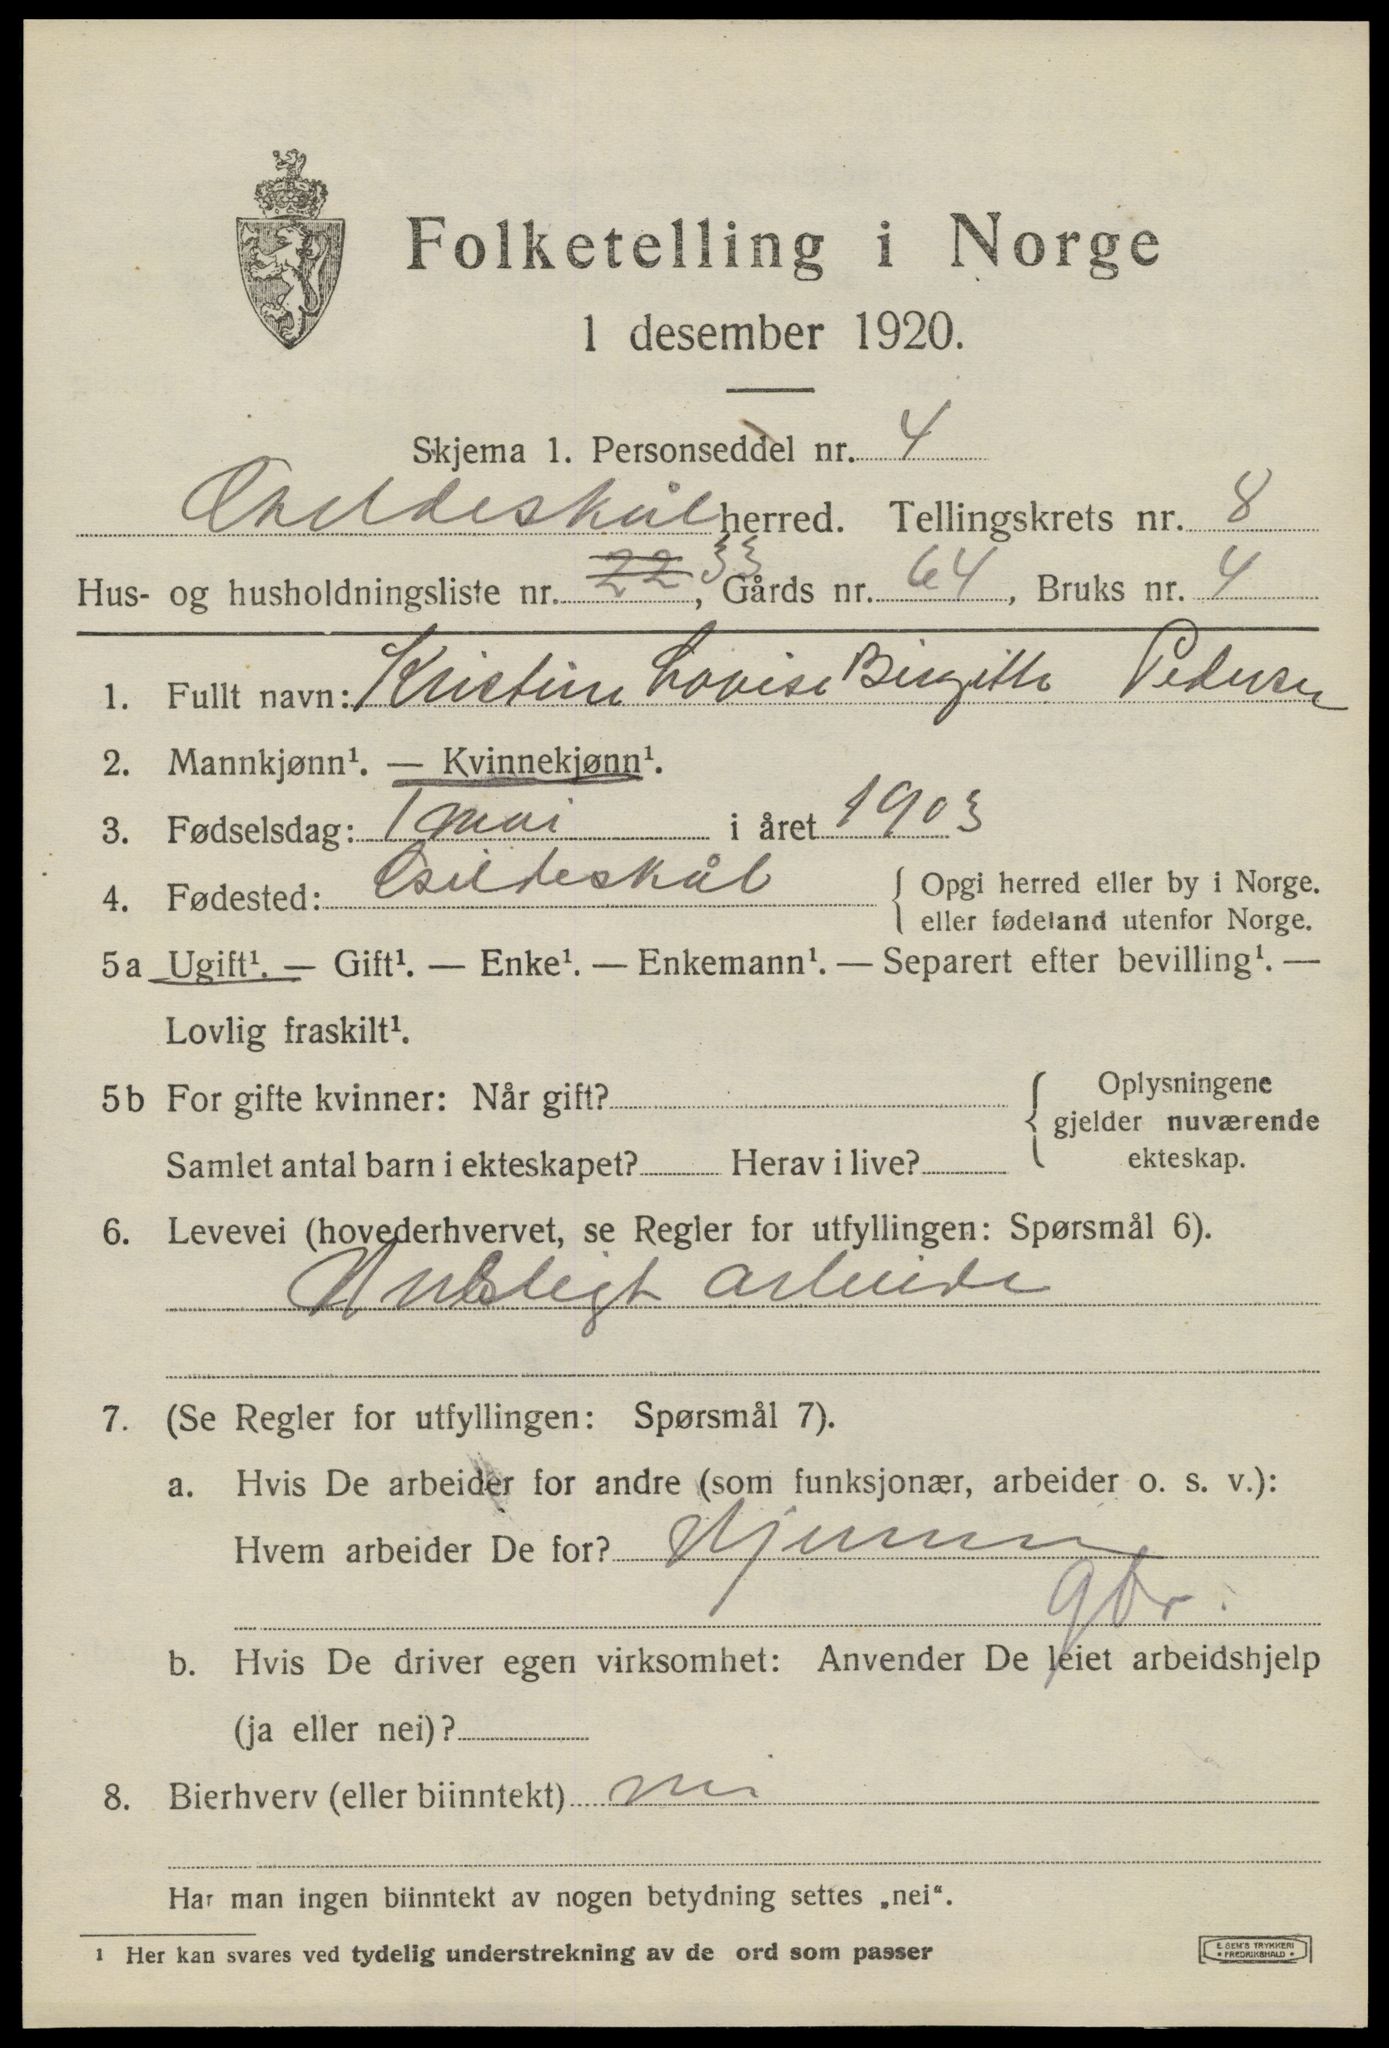 Folketelling i Norge
1 desember 1920.
Skjema 1. Personseddel nr. 4
Gildeskål herred. Tellingskrets nr. 8
Hus- og husholdningsliste nr. 22 33, Gårds nr. 64, Bruks nr. 4
1. Fullt navn: Kristine Lovise Birgitte Pedersen
2. Mannkjønn¹. — Kvinnekjønn¹.
3. Fødselsdag: 1 mai i året 1903
4. Fødested: Gildeskål { Opgi herred eller by i Norge.
eller fødeland utenfor Norge.
5a Ugift¹. — Gift¹. — Enke¹. — Enkemann¹. — Separert efter bevilling¹. —
Lovlig fraskilt¹.
5b For gifte kvinner: Når gift? { Oplysningene
gjelder nuværende
Samlet antal barn i ekteskapet? Herav i live? ekteskap.
6. Levevei (hovederhvervet, se Regler for utfyllingen: Spørsmål 6).
Husligt arbeide
7. (Se Regler for utfyllingen: Spørsmål 7).
a. Hvis De arbeider for andre (som funksjonær, arbeider o. s. v.):
Hvem arbeider De for? Hjemme
gbr.
b. Hvis De driver egen virksomhet: Anvender De leiet arbeidshjelp
(ja eller nei)?
8. Bierhverv (eller biinntekt) nei
Har man ingen biinntekt av nogen betydning settes „nei“.
¹ Her kan svares ved tydelig understrekning av de ord som passer
E. SEM'S TRYKKERI
• FREDRIKSHALD •